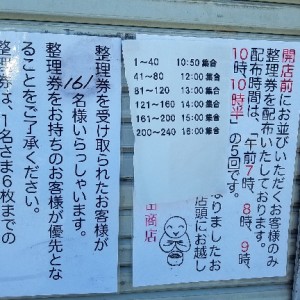 開店前にお並びいただくお客様のみ
整理券を配布いたしております。
配布時間は、午前7時、8時、9時、
10時、10時半の5回です。
1~40 10:50集合
41~80 12:00集合
81~120 13:00集合
121~160 14:00集合
161~200 15:00集合
200~240 16:00集合
なりましたお
店頭にお越し
田商店
整理券を受け取られたお客様が
161名様いらっしゃいます。
整理券をお持ちのお客様が優先とな
ることをご了承ください。
整理券は、1名さま6枚までの